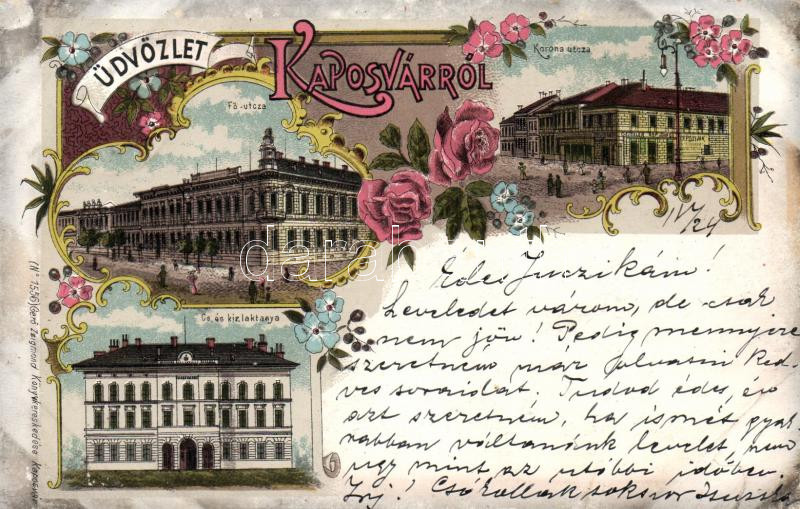 ÜDVÖZLET
KAPOSVÁRRÓL
Fő-utcza
Korona utcza
Cs. és kir. laktanya
(Nº 1556) Gerő Zsigmond Könyvkereskedése Kaposvár
IV/24
Édes Juczikám!
Leveledet várom, de csak
nem jön! Pedig mennyire
szeretném már olvasni ked-
ves soraidat. Tudod édes, én
azt szeretném, ha ismét gyak-
rabban váltanánk levelet, nem
úgy mint az utóbbi időben.
Írj! Csókollak sokszor
6
darabanth.com